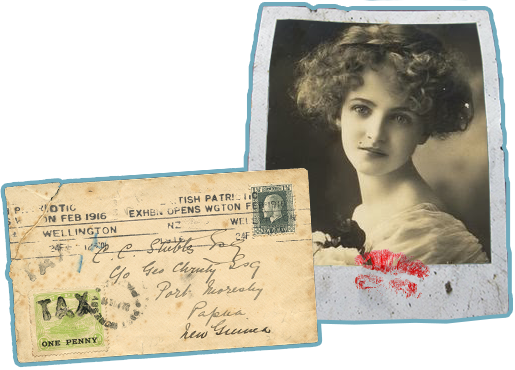 OTIC
ON FEB 1916
WELLINGTON
TISH PATRI
EXHBN OPENS WGTON FEB
NZ
WEL
24F
C. Stubbs Esq
C/o Geo Christy Esq
Port Moresby
Papua
New Guinea
TAX
TAX
ONE PENNY